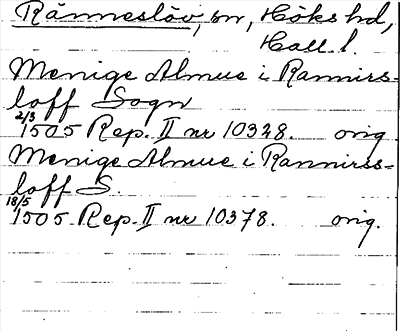 Ränneslöv, sn, Höks hd,
Hall l.
Menige Almue i Rannirs-
loff Sogn
2/3
1505 Rep. II nr 10328. orig
Menige Almue i Rannirss-
loff S.
18/5
1505 Rep. II nr 10378. orig.